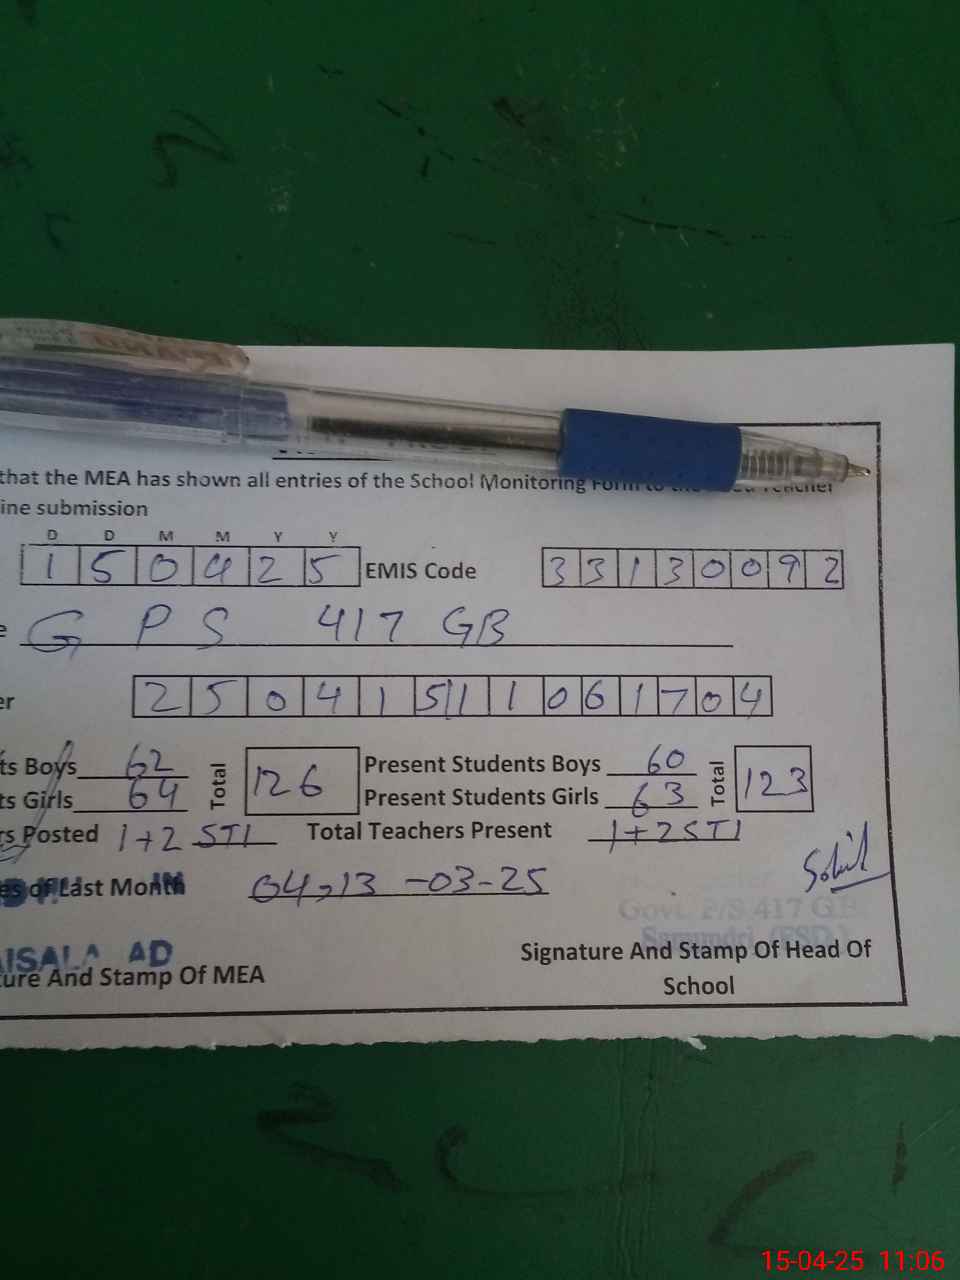 that the MEA has shown all entries of the School Monitoring Form to the Teacher
ine submission
D D M M Y Y
1 5 0 4 2 5 EMIS Code 3 3 1 3 0 0 9 2
e G P S 417 GB
er 2 5 0 4 1 5 1 1 0 6 1 7 0 4
ts Boys 62 Total 126 Present Students Boys 60 Total 123
ts Girls 64 Present Students Girls 63
rs Posted 1+2 STI Total Teachers Present 1+2 STI
es of Last Month 04,13 -03-25
Govt. P/S 417 GB
Samundri (FSD)
AISALA AD
ture And Stamp Of MEA Signature And Stamp Of Head Of
School
15-04-25 11:06